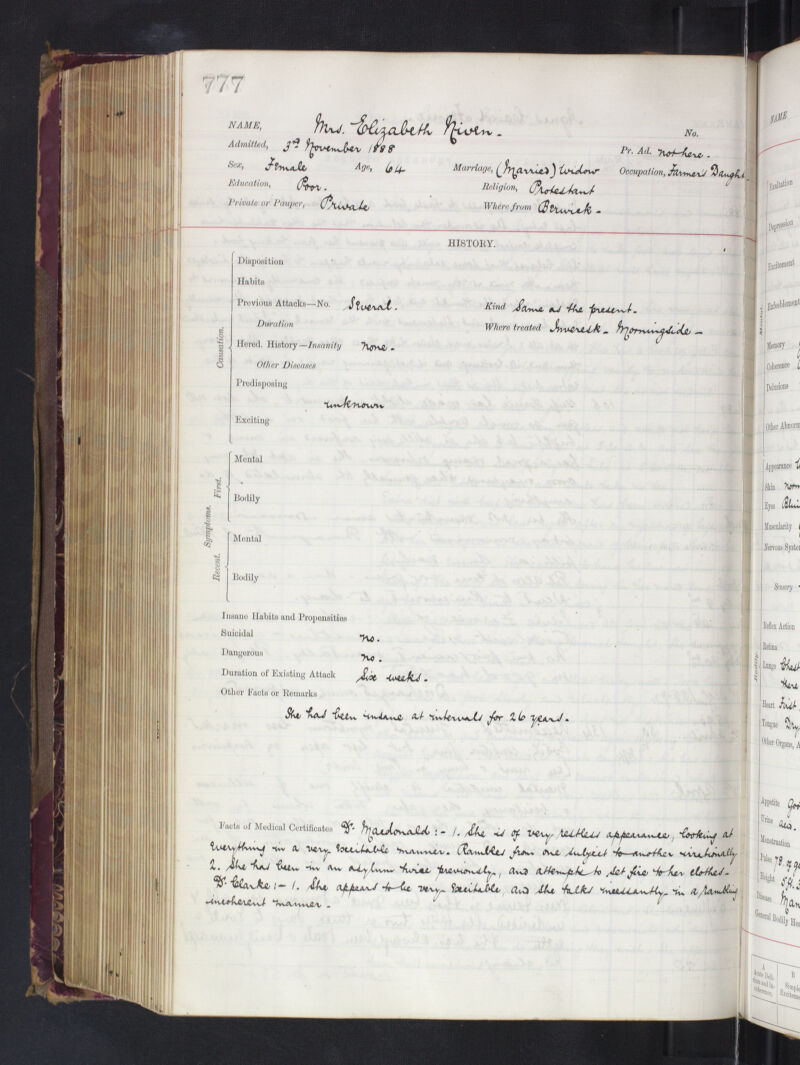 777
NAME, Mrs. Elizabeth Niven. No.
Admitted, 3rd November 1888 Pr. Ad. not here.
Sex, Female Age, 64 Marriage, (Married) Widow Occupation, Farmer's Daught
Education, Poor. Religion, Protestant
Private or Pauper, Private Where from Berwick.
HISTORY.
Causation.
Disposition
Habits
Previous Attacks—No. Several. Kind Same as the present.
Duration Where treated Inveresk. Morningside
Hered. History—Insanity None.
Other Diseases
Predisposing
unknown
Exciting
Symptoms.
First.
Mental
Bodily
Recent.
Mental
Bodily
Insane Habits and Propensities
Suicidal no.
Dangerous no.
Duration of Existing Attack Six weeks.
Other Facts or Remarks
She has been insane at intervals for 26 years.
Facts of Medical Certificates Dr. Macdonald:- 1. She is of very restless appearance, looking at
everything in a very excitable manner. Rambles from one subject to another irrationally
2. She has been in an asylum twice previously, and attempts to set fire to her clothes.
Dr. Clarke:- 1. She appears to be very excitable, and she talks incessantly in a rambling
incoherent manner.
NAME
Exaltation
Depression
Excitement
Enfeeblement
Memory
Coherence
Delusions
Other Abnorm
Appearance
Skin
Eyes
Muscularity
Nervous Syste
Sensory
Reflex Action
Retina
Lungs Chest
there
Heart First
Tongue Dry
Other Organs, A
Appetite
Urine
Menstruation
Pulse 78
Height 5 ft. 3
Disease Man
General Bodily Hea
A
B